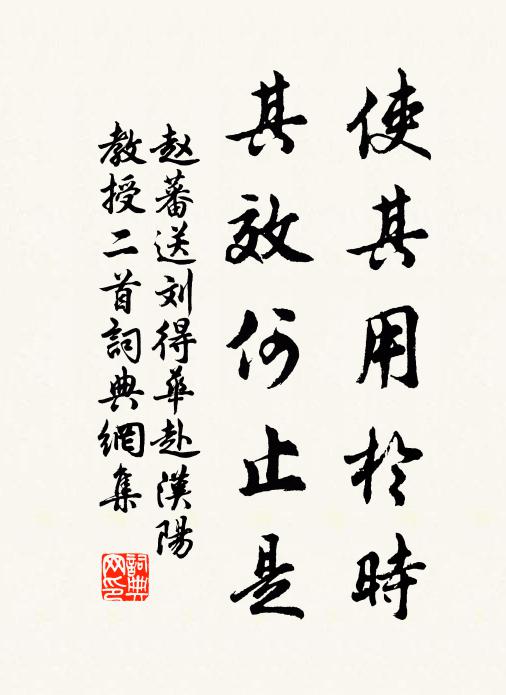 使其用於時
其效何止是
赵蕃送刘得华赴漢陽
教授二首詞典網集
詞典
网印